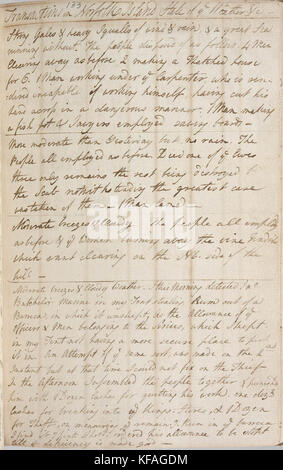 Transactions on Norfolk Island State of ye Weather &c
Strong Gales & heavy Squalls of wind & rain & a great Sea
running without. The people disposed of as follows 4 Men
Clearing away as before 2 making a thatched house
for 6. 1 Man working under ye Carpenter who is ren-
dered incapable of working himself having cut his
hand across in a dangerous manner. 1 Man making
a fish pot & Sawyers employed sawing boards
More moderate than Yesterday but no rain. The
People all employed as before. Dead one of ye Ewes
there only remains the rest being destroyed by
the Salt notwithstanding the greatest care
was taken of them
Moderate breezes & Cloudy the people all employed
as before & ye Women burning away the vine
which want clearing on the NE side of the
hill
Moderate breezes & Cloudy Weather. This Morning detected Jno
Batchelor Marine in my Tent stealing Rum out of a
Barrica in which it was kept, as the Allowance of ye
Officers & Men belonging to the Sirius, which I kept
in my Tent not having a more secure place to put
it in. An Attempt of ye same sort was made on the
Instant but at that time I could not fix on the Thief
In the Afternoon Assembled the people together & punished
him with 3 Dozen
lashes for breaking into ye Kings Stores, & 1 Dozen
for Theft, on measuring ye remain of Rum in ye barrica
ordered his allowance to be stopt
till ye deficiency is made good